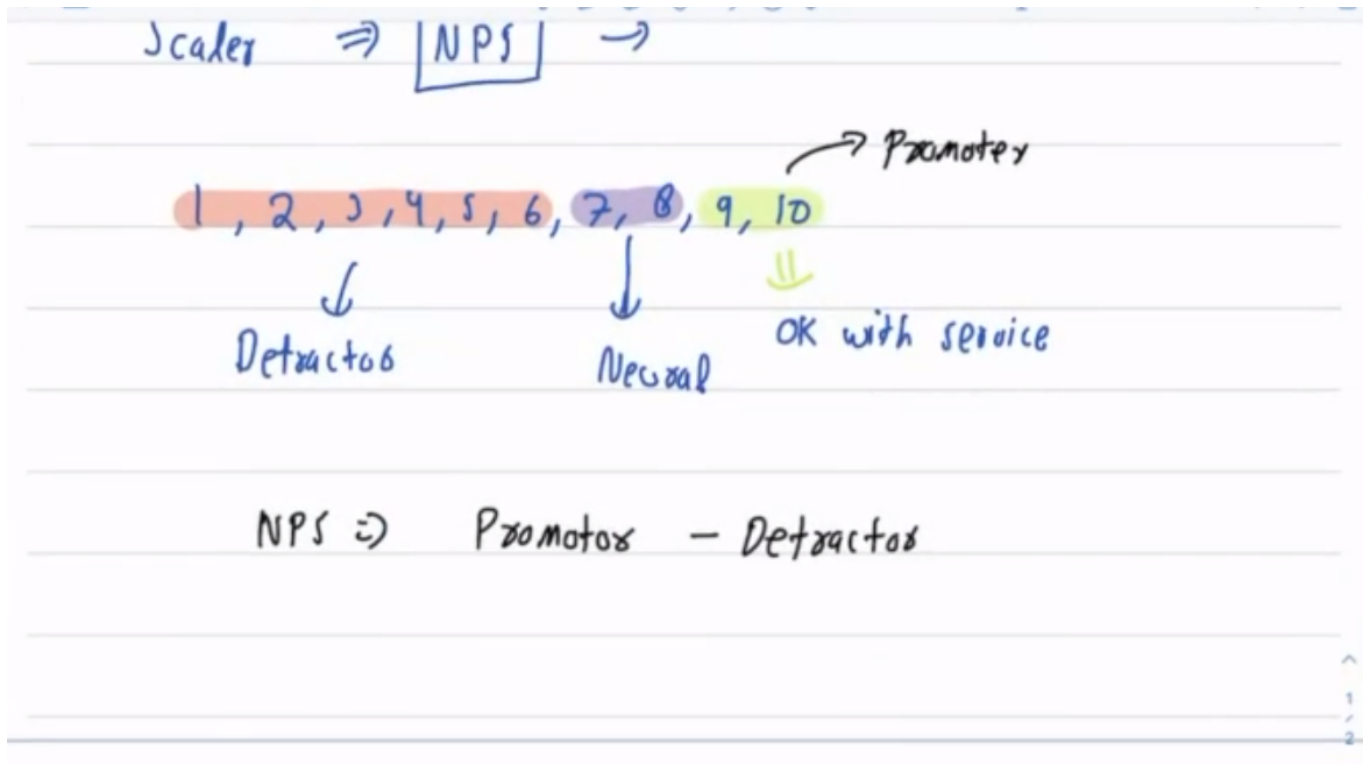 Scaler ⇒ NPS →
Promoter
1, 2, 3, 4, 5, 6, 7, 8, 9, 10
Detractor Neural OK with service
NPS ⇒ Promotor - Detractor
1
2